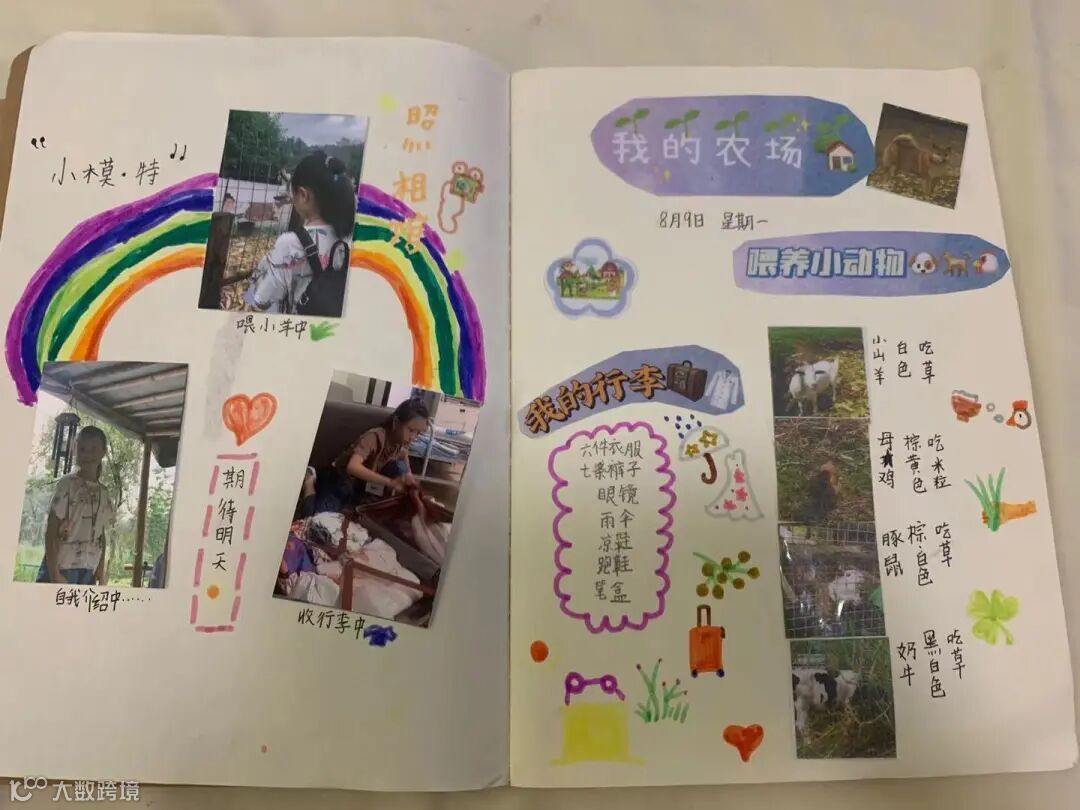 "小模·特"
照心相传
喂小羊中
期待明天
自我介绍中……
收行李中
我的农场
8月9日 星期一
喂养小动物
我的行李
六件衣服
七条裤子
眼镜
雨伞
凉鞋
跑鞋
笔盒
小山羊 白色 吃草
母鸡 棕黄色 吃米粒
豚鼠 棕·白色 吃草
奶牛 黑白色 吃草
大数跨境